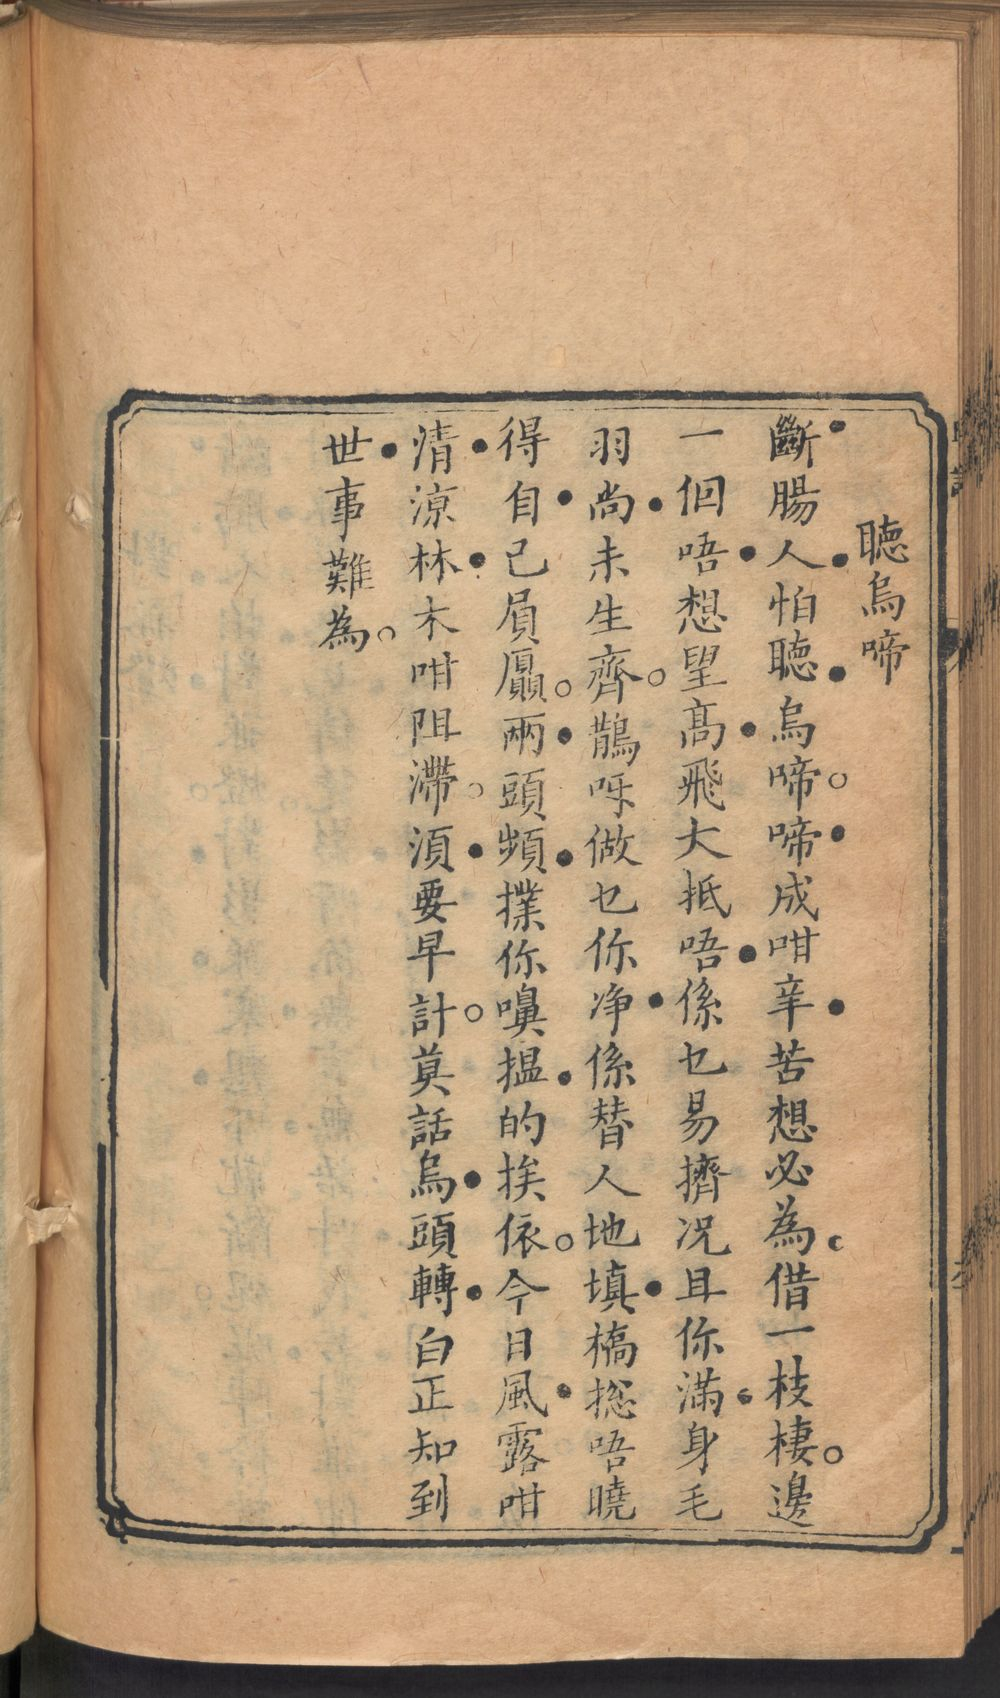 聴烏啼
斷腸人怕聴烏啼啼成咁辛苦想必為借一枝棲邊
一個唔想望高飛大抵唔係乜易擠况且你滿身毛
羽尚未生齊鵲呀做乜你净係替人地填橋揔唔曉
得自己屓贔兩頭頻撲你嗅揾的挨依今日風露咁
清涼林木咁阻滯須要早計莫話烏頭轉白正知到
世事難為